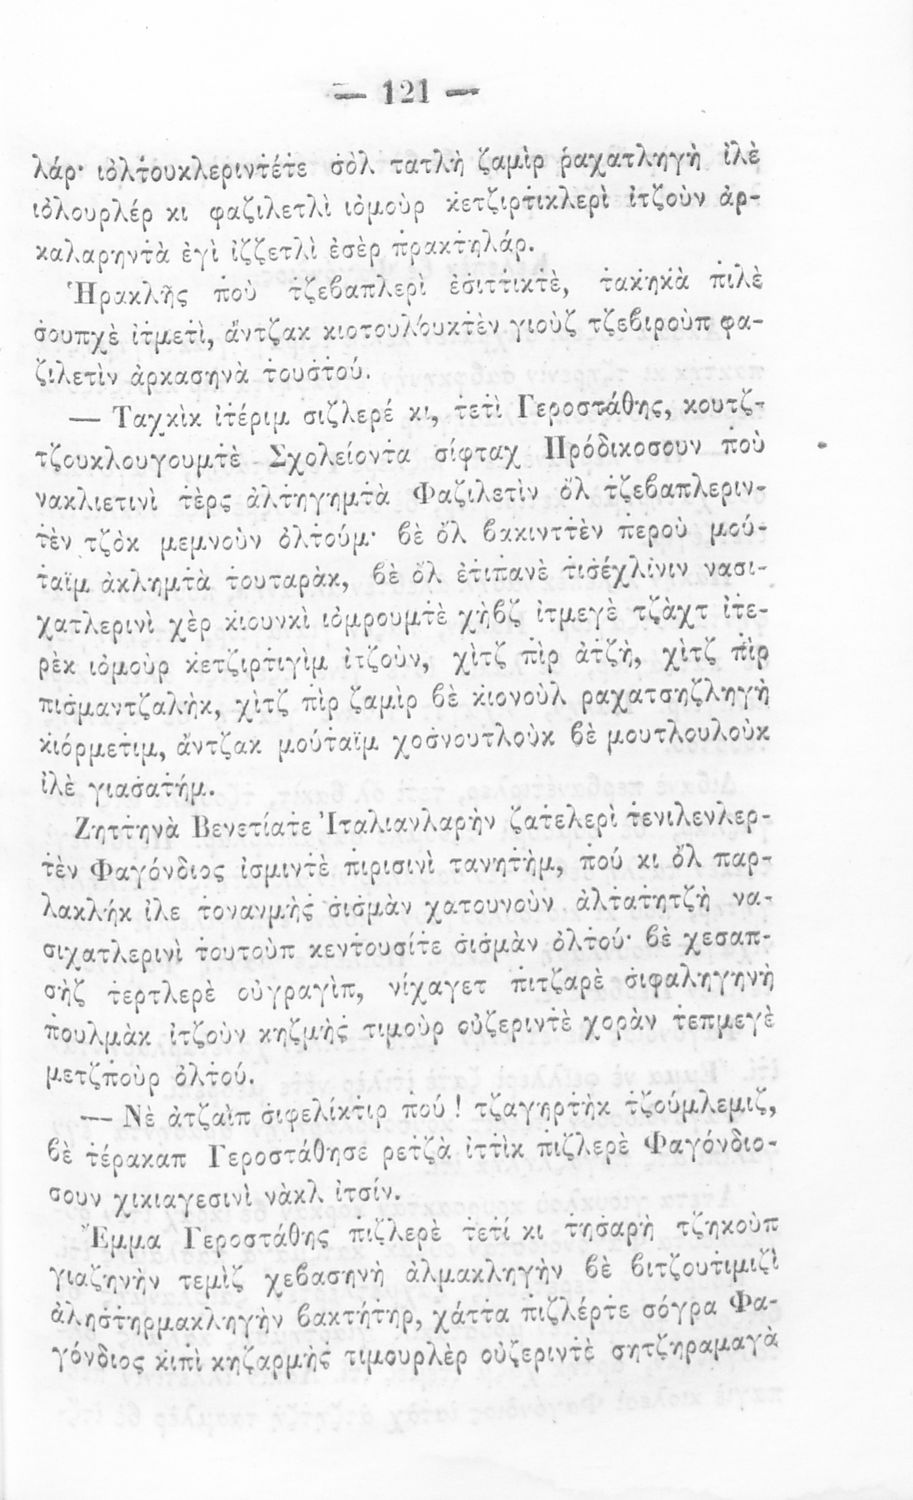 — 121 —
λάρ· ἰὀλτ̇ουκλεριντ̇έτε σ̇ὸλ τατλὴ ζαμὶρ ῥαχατληγὴ ἰλὲ
ἰὀλουρλέρ κι φαζιλετλὶ ἰὀμοὺρ κετζιρτ̇ικλερὶ ἰτζοὺν ἀρ-
καλαρηντ̇ὰ ἐγὶ ἰζζετλὶ ἐσὲρ π̇ρακτηλάρ.
Ἡρακλῆς π̇οὺ τζεβαπλερὶ ἐσ̇ιττικτὲ, τ̇ακηκὰ π̇ιλὲ
σ̇ουπχὲ ἰτμετὶ, ἄντζακ κιοτουλουκτὲν γιοὺζ τζεβιροὺπ φα-
ζιλετὶν ἀρκασηνὰ τ̇ουσ̇τού.
— Ταχκὶκ ἰτ̇έριμ σιζλερέ κι, τ̇ετὶ Γεροστάθης, κουτζ-
τζουκλουγουμτ̇ὲ Σχολείοντ̇α σίφταχ Πρόδικοσουν π̇οὺ
νακλιετινὶ τ̇ὲρς ἀλτ̇ηγημτ̇ὰ Φαζιλετὶν ὂλ τζεβαπλεριν-
τ̇ὲν τζὸκ μεμνοὺν ὀλτ̇ούμ· βὲ ὂλ βακιντ̇τ̇ὲν π̇εροὺ μού-
ταϊμ ἀκλημτ̇ὰ τ̇ουταρὰκ, βὲ ὂλ ἐτιπανὲ τισέχλινιν νασι-
χατλερινὶ χὲρ κιουνκὶ ἰὀμρουμτ̇ὲ χὴβζ ἰτμεγὲ τζὰχτ ἰτε-
ρὲκ ἰὀμοὺρ κετζιρτ̇ιγὶμ ἰτζοὺν, χὶτζ π̇ὶρ ἀτζὴ, χὶτζ π̇ὶρ
πισ̇μαντζαλὴκ, χὶτζ π̇ὶρ ζαμὶρ βὲ κιονοὺλ ραχατσηζληγὴ
κιόρμετιμ, ἄντζακ μούταϊμ χοσ̇νουτλοὺκ βὲ μουτλουλοὺκ
ἰλὲ γιασ̇ατ̇ήμ.
Ζηττηνὰ Βενετίατε Ἰταλιανλαρὴν ζατελερὶ τ̇ενιλενλερ-
τ̇ὲν Φαγόνδιος ἰσμιντ̇ὲ π̇ιρισινὶ τανητ̇ὴμ, π̇ού κι ὂλ παρ-
λακλὴκ ἰλε τ̇ονανμὴς̇ σ̇ισ̇μὰν χατουνοὺν ἀλτ̇ατ̇ητζὴ να-
σιχατλερινὶ τουτοὺπ κεντ̇ουσίτε σ̇ισ̇μὰν ὀλτ̇ού· βὲ χεσαπ-
σὴζ τ̇ερτλερὲ οὐγραγὶπ, νίχαγετ π̇ιτζαρὲ σ̇ιφαληγηνὴ
π̇ουλμὰκ ἰτζοὺν κηζμὴς̇ τιμοὺρ οὐζεριντ̇ὲ χορὰν τεπμεγὲ
μετζπ̇οὺρ ὀλτ̇ού.
— Νὲ ἀτζαῒπ σ̇ιφελίκτιρ π̇ού ! τζαγηρτ̇ὴκ τζούμλεμιζ,
βὲ τ̇έρακαπ Γεροστάθησε ρετζὰ ἰττὶκ π̇ιζλερὲ Φαγόνδιο-
σουν χικιαγεσινὶ νὰκλ ἰτσίν.
Ἔμμα Γεροστάθης π̇ιζλερὲ τ̇ετί κι τησ̇αρὴ τζηκοὺπ
γιαζηνὴν τεμὶζ χεβασηνὴ ἀλμακληγὴν βὲ βιτζουτιμιζὶ
ἀλησ̇τηρμακληγὴν βακτήτηρ, χάττα π̇ιζλέρτε σόγρα Φα-
γόνδιος κιπὶ κηζαρμὴς̇ τιμουρλὲρ οὐζεριντ̇ὲ σητζηραμαγὰ